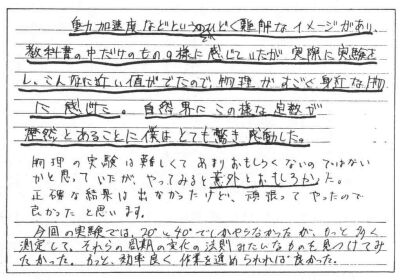 重力加速度などというのひどく難解なイメージがあり、
教科書の中だけのもの様に感じていたが実際に実験を
し、こんなに近い値がでたので物理がすごく身近な物
に感じた。自然界にこの様な定数が
歴然とあることに僕はとても驚き感動した。
物理の実験は難しくてあまりおもしろくないのではない
かと思っていたが、やってみると意外とおもしろかった。
正確な結果は出なかったけど、頑張ってやったので
良かったと思います。
今回の実験では、20°と40°でしかやらなかったが、もっと多く
測定して、それらの周期の変化の法則みたいなものを見つけてみ
たかった。もっと、効率良く作業を進められれば良かった。